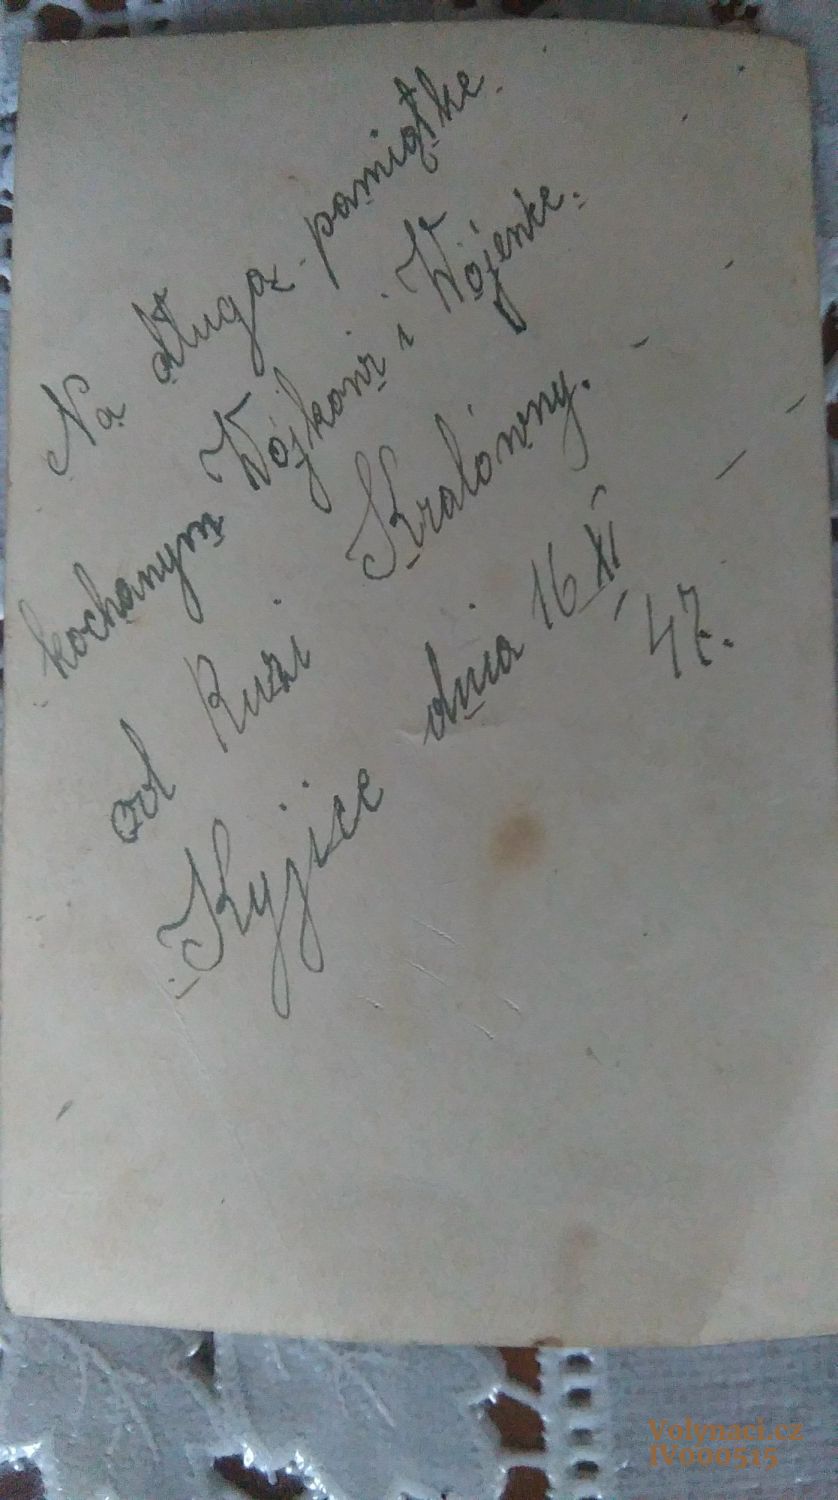 Na długą pamiątke.
kochanym Wójkowi i Wójence.
od Ruzi Kralówny.
Kyjice dnia 16 XI
47.
Volynaci.cz
IV000515